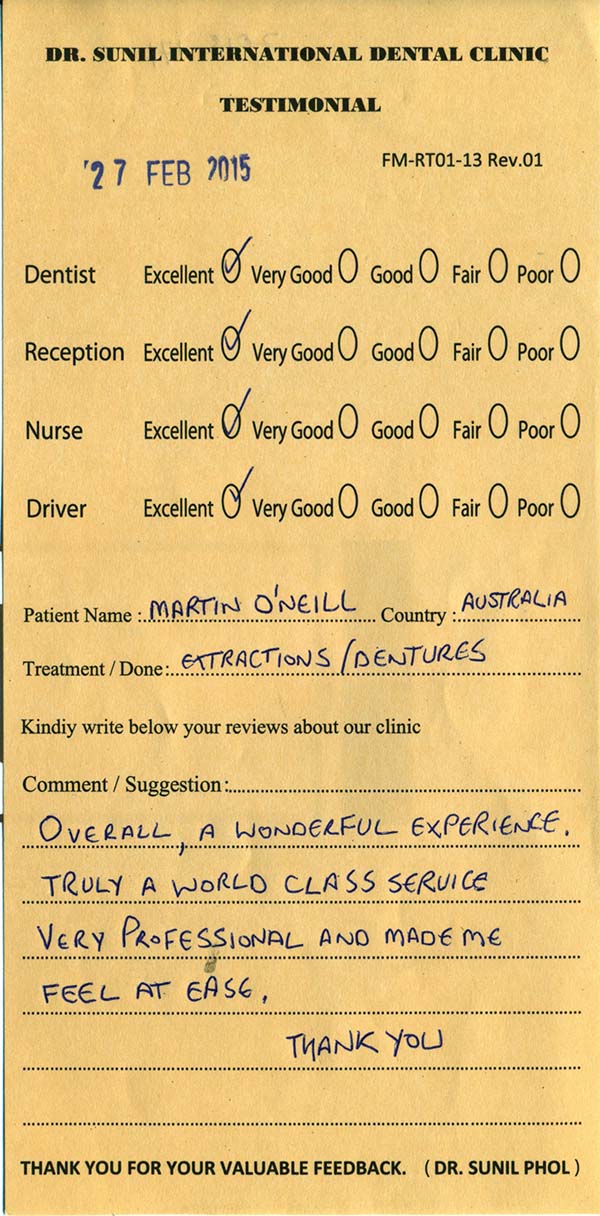 DR. SUNIL INTERNATIONAL DENTAL CLINIC
TESTIMONIAL
'27 FEB 2015
FM-RT01-13 Rev.01
Dentist Excellent Very Good Good Fair Poor
Reception Excellent Very Good Good Fair Poor
Nurse Excellent Very Good Good Fair Poor
Driver Excellent Very Good Good Fair Poor
Patient Name : MARTIN O'NEILL Country : AUSTRALIA
Treatment / Done : EXTRACTIONS / DENTURES
Kindiy write below your reviews about our clinic
Comment / Suggestion :
OVERALL, A WONDERFUL EXPERIENCE.
TRULY A WORLD CLASS SERVICE
VERY PROFESSIONAL AND MADE ME
FEEL AT EASE.
THANK YOU
THANK YOU FOR YOUR VALUABLE FEEDBACK. ( DR. SUNIL PHOL )